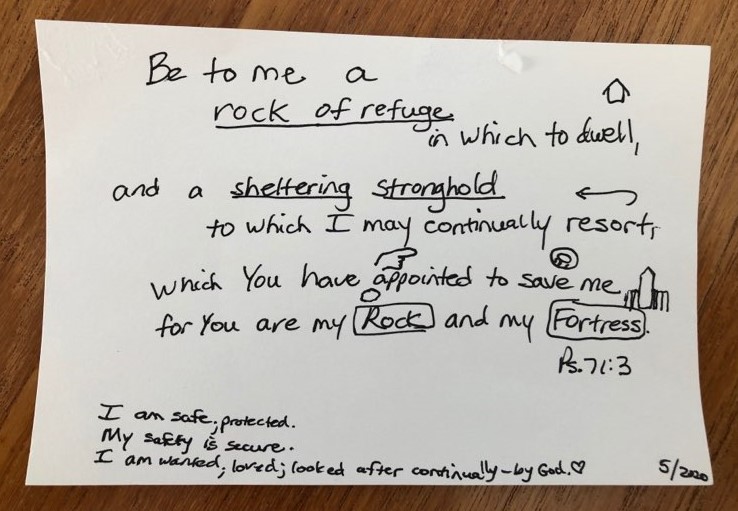 Be to me a
rock of refuge
in which to dwell,
and a sheltering stronghold
to which I may continually resort,
which You have appointed to save me
for You are my Rock and my Fortress.
Ps. 71:3
I am safe; protected.
My safety is secure.
I am wanted; loved; looked after continually - by God. ♡
5/2020